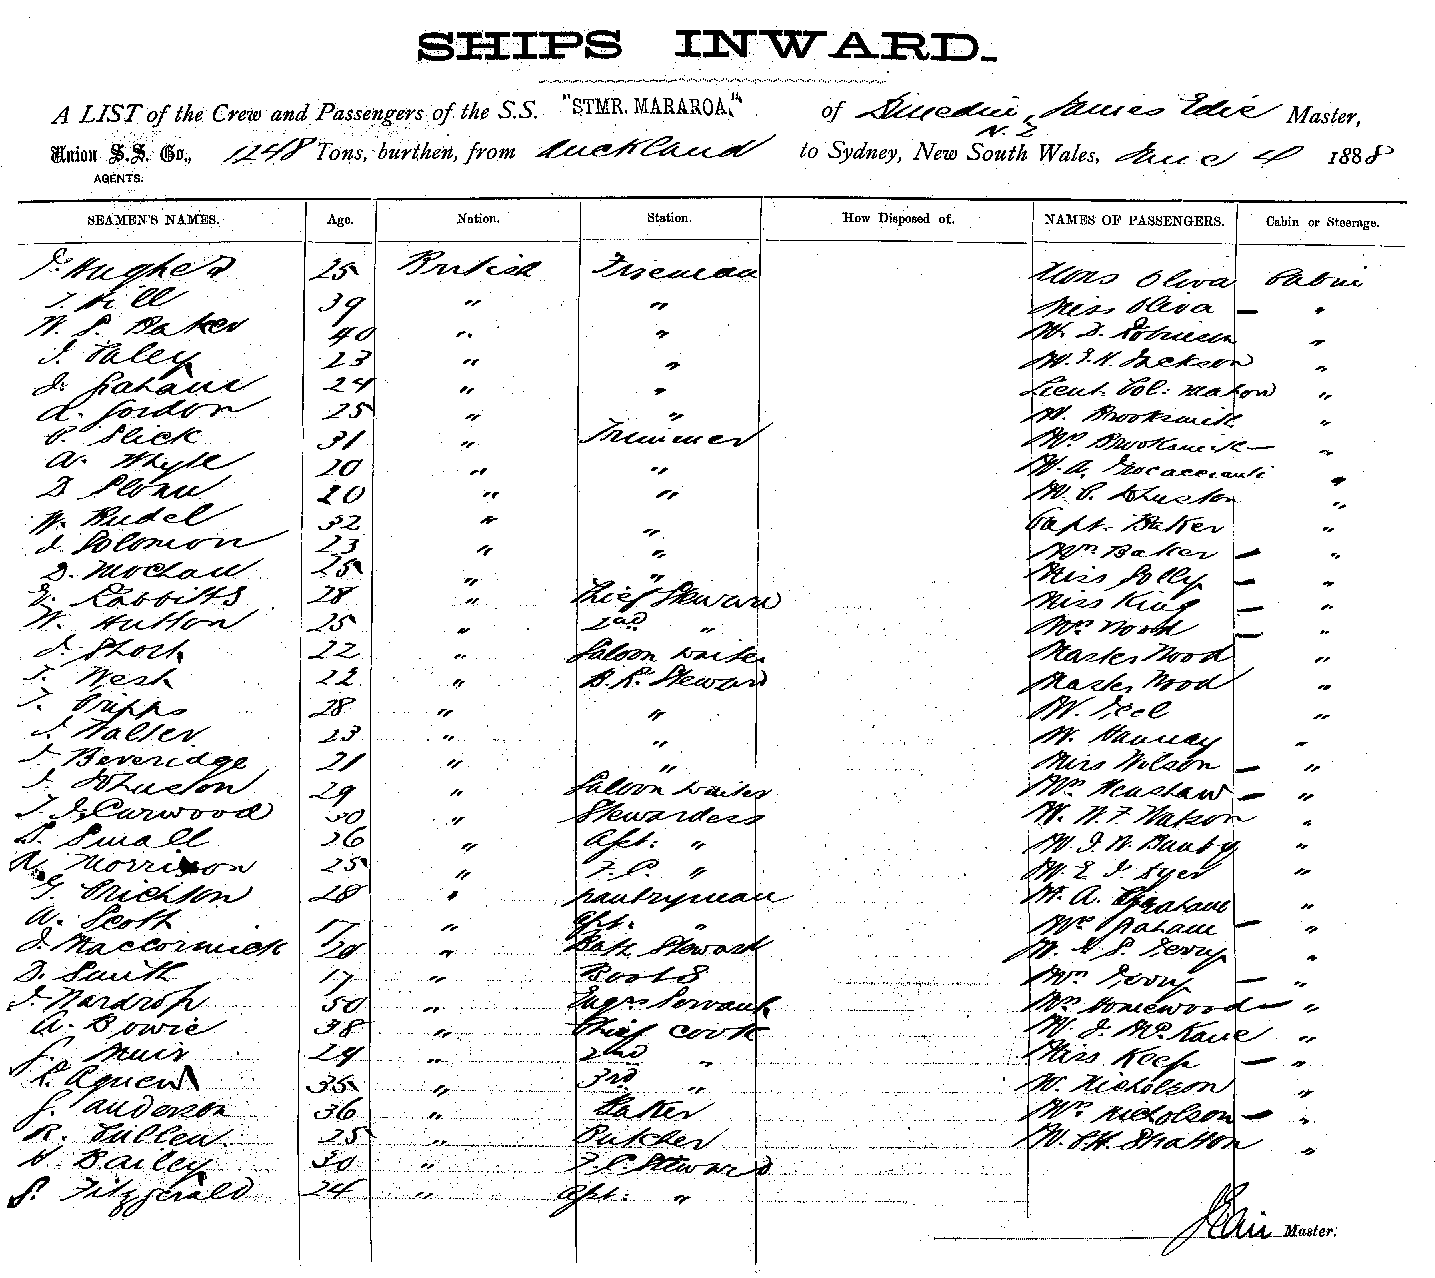 SHIPS INWARD.
A LIST of the Crew and Passengers of the S.S. "STMR. MARAROA," of Dunedin, N.Z James Edie Master,
Union S.S. Co., 1248 Tons, burthen, from Auckland to Sydney, New South Wales, June 4 1888
AGENTS.
SEAMEN'S NAMES. Age. Nation. Station. How Disposed of. NAMES OF PASSENGERS. Cabin or Steerage.
J. Hughes 25 British Fireman Mons Oliva Cabin
J Hill 39 " " Miss Oliva — "
W. P. Baker 40 " " Mr D. Robinson "
J. Faley 23 " " Mr J. H. Jackson "
J. Graham 24 " " Lieut. Col: Mahon "
A. Gordon 25 " " Mr Brooksmith "
P. Slick 31 " Trimmer Mrs Brooksmith — "
A. Whyte 20 " " Mr A. "
D Sloan 20 " " Mr C. Johnston "
W. Rudel 32 " " Capt. Baker "
J Solomon 23 " " Mrs Baker — "
D. Mochan 25 " " Miss Jolly — "
E. Rabbitts 28 " Chief Steward Miss King — "
W. Hutton 25 " 2nd " Mrs Wood — "
J. Short 22 " Saloon waiter Master Wood "
J. West 22 " B. R. Steward Master Wood "
T. Cripps 28 " " Mr Teel "
J. Walter 23 " " Mr Hannay "
J. Beveridge 21 " " Miss Wilson — "
J. Johnston 29 " Saloon waiter Mrs Henshaw — "
T J. Curwood 30 " Stewardess Mr W. F. Watson "
S. Small 36 " Aft: " Mr J. W. "
Morrison 25 " F. C. " Mr E. J. Syer "
G. Erichson 28 " pantryman Mr A. Graham "
A. Scott 17 " aft. " Mrs Graham — "
J. MacCormick 20 " Bath Steward Mr H S. "
D. Smith 17 " Boots Mrs — "
J. Wardrop 50 " Engrs Servant Mrs Homewood — "
A. Bowie 38 " Chief cook Mr J. McKane "
J. Muir 29 " 2nd " Miss Keep — "
R. Agnew 35 " 3rd " Mr Nicholson "
G. Anderson 36 " Baker Mrs Nicholson — "
R. Cullen 25 " Butcher Mr P. H. Stratton "
H Bailey 30 " F. C Steward
S. Fitzgerald 24 " aft: "
J Edie Master.